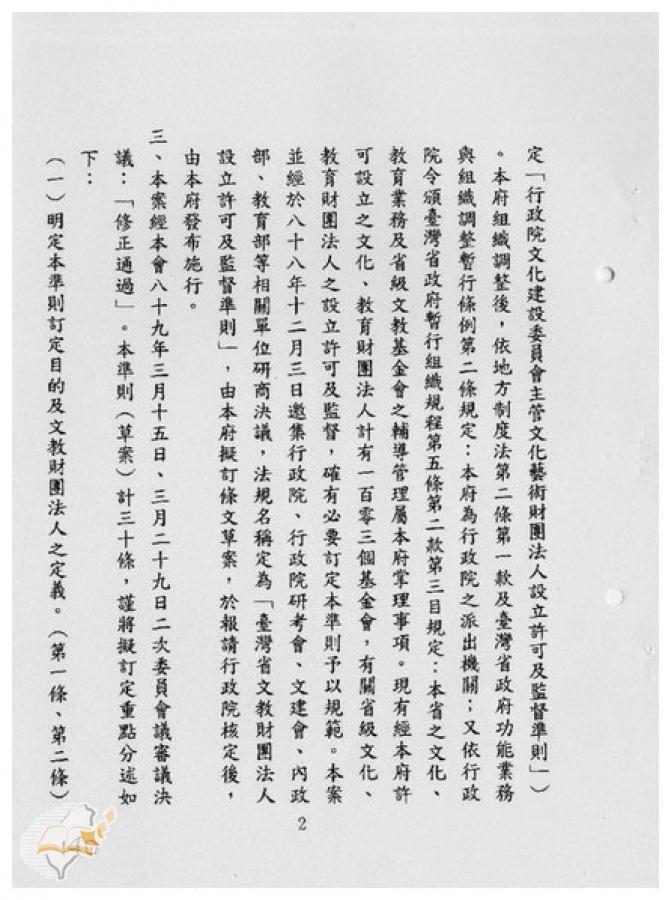 定「行政院文化建設委員會主管文化藝術財團法人設立許可及監督準則」）
。本府組織調整後，依地方制度法第二條第一款及臺灣省政府功能業務
與組織調整暫行條例第二條規定：本府為行政院之派出機關；又依行政
院令頒臺灣省政府暫行組織規程第五條第二款第三目規定：本省之文化、
教育業務及省級文教基金會之輔導管理屬本府掌理事項。現有經本府許
可設立之文化、教育財團法人計有一百零三個基金會，有關省級文化、
教育財團法人之設立許可及監督，確有必要訂定本準則予以規範。本案
並經於八十八年十二月三日邀集行政院、行政院研考會、文建會、內政
部、教育部等相關單位研商決議，法規名稱定為「臺灣省文教財團法人
設立許可及監督準則」，由本府擬訂條文草案，於報請行政院核定後，
由本府發布施行。
三、本案經本會八十九年三月十五日、三月二十九日二次委員會議審議決
議：「修正通過」。本準則（草案）計三十條，謹將擬訂定重點分述如
下：
（一）明定本準則訂定目的及文教財團法人之定義。（第一條、第二條）
2